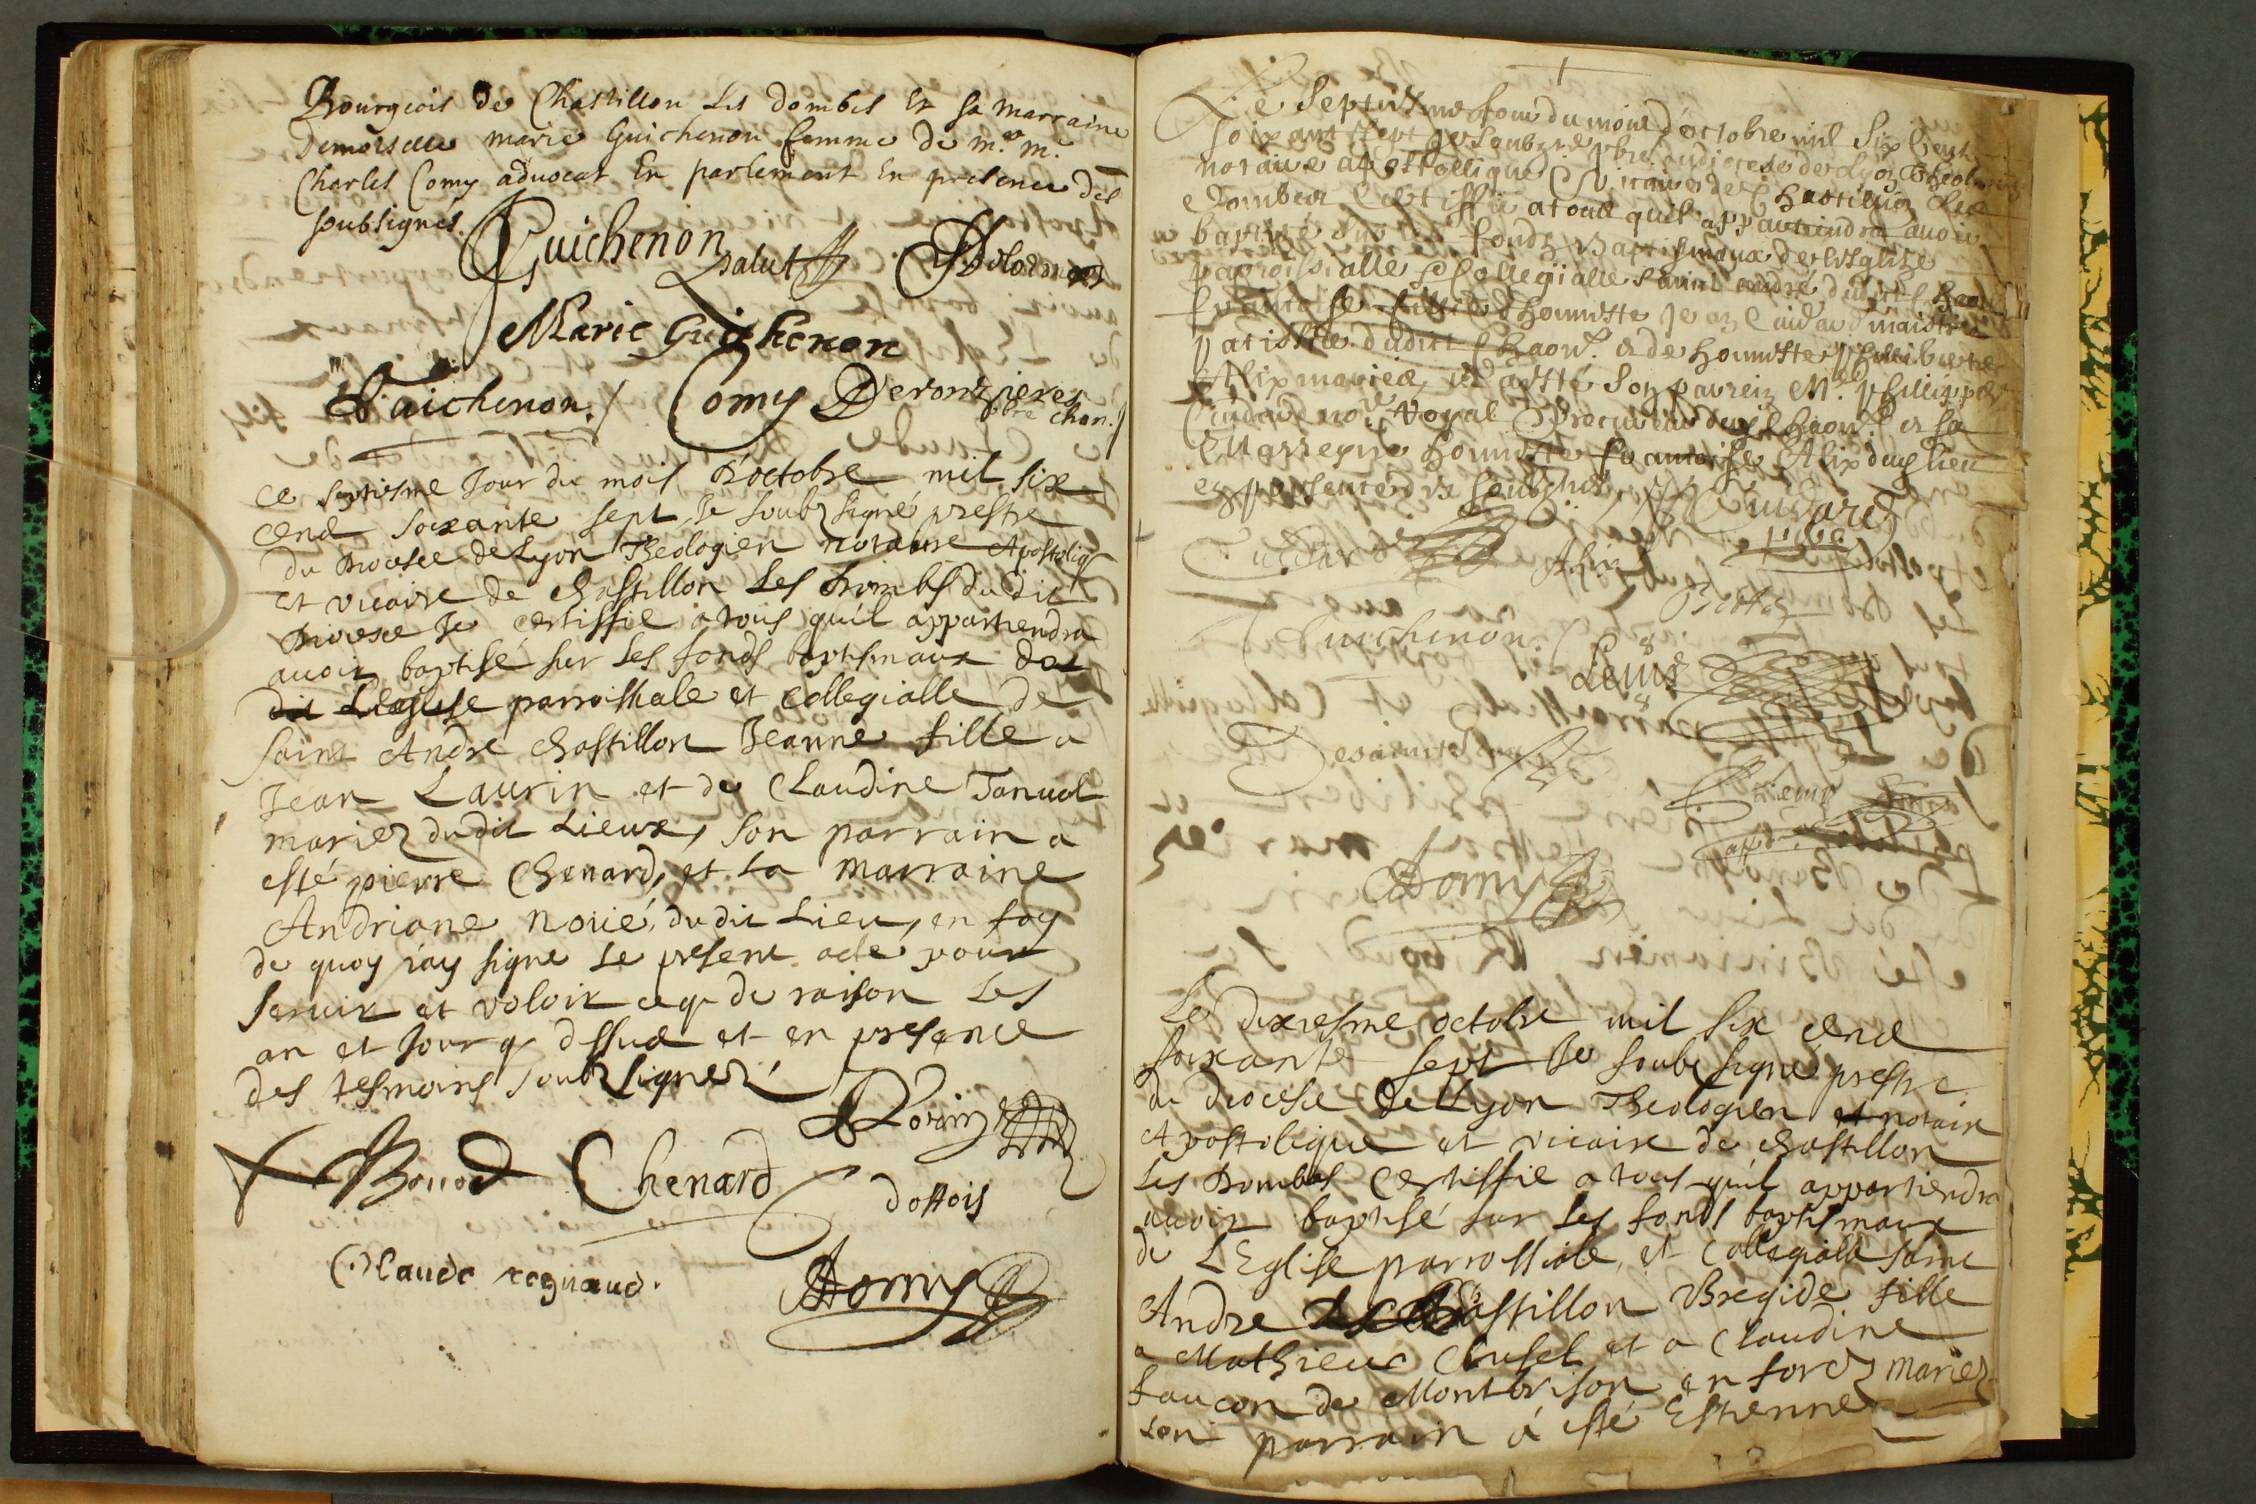 Bourgeois de Chastillon Les dombes Et sa marraine
Demoiselle marie Guichenon femme de m.e m.e
Charles Comy advocat En parlement En presence des
soubsignés.
Guichenon
salut
Marie Guichenon
Guichenon. Comy Deronzieres
pbre chan.
ce septiesme Jour du mois D'octobre mil six
cene soixante sept, Je soubz signé prestre
du Diocese de Lyon Theologien notaire Apostoliq
et vicaire de chastillon Les Dombes du dit
Diocese Je certiffie a tous qu'il appartiendra
avoir baptisé sur Les fonds baptismaux
L'eglise parroissiale et collegialle de
saint Andre chastillon Jeanne fille a
Jean Laurin et de Claudine Januel
mariez du dit Lieux, son parrain a
esté pierre Chenard, et La marraine
Andriane du dit Lieu, en foy
de quoy j'ay signe Le present acte pour
servir et valoir ce q de raison Les
an et Jour q dessus et en presence
des tesmoins soubz signez
Chenard
Claude regnaud.
Le Septiesme Jour du mois d'octobre mil Six Cent
soixant sept Je soubzne pbre du diocese de Lyon Theologien
notaire apostollique & vicaire de Chastillon les
Dombes Certiffie a tous quil appartiendra avoir
baptisé sur les fondz Baptismaux de l'Eglize
parroissialle & Collegialle saint André dudit Chaon
francoise fille d'honneste Jean Cuidard maistre
patissier dudit Chaon. & de honneste philiberte
Alix mariez, et a esté son parrein M.e philippes
Cuidard no.re Royal & procureur dud Chaon. & sa
Marreyne honneste francoise Alix dud lieu
en presence des soubznés
Cuidard
Cuidard Alix
Guichenon.
Le dixiesme octobre mil six cene
soixante sept Je soubz signe prestre
du diocese de Lyon Theologien et notaire
Apostolique et vicaire de chastillon
Les Dombes Certiffie a tous qu'il appartiendra
avoir baptisé sur Les fonds baptismaux
de L'Eglise parroissiale, et Collegialle saint
Andre chastillon Bregide fille
a Mathieu et a Claudine
faucon de Montbrison en forez mariez
son parrain a esté Estienne